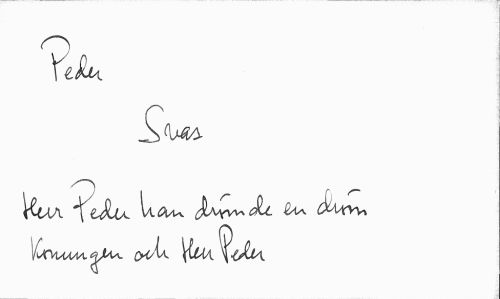 Peder
Svas
Herr Peder han drömde en dröm
Konungen och Herr Peder